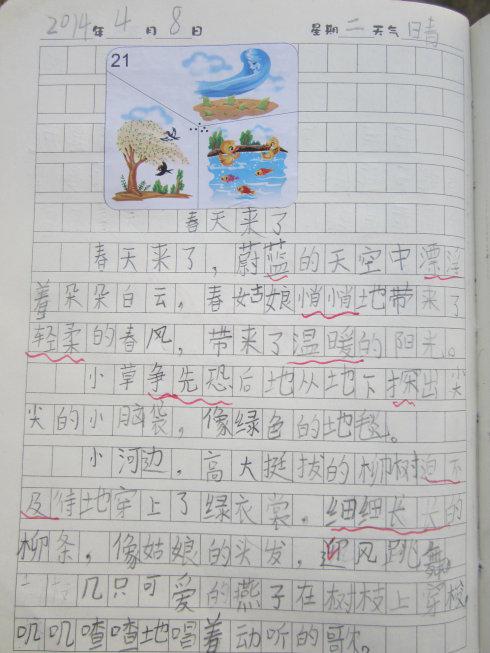 2014年 4 月 8 日 星期 二 天气 晴
21
春天来了
春天来了，蔚蓝的天空中漂浮
着朵朵白云，春姑娘悄悄地带来了
轻柔的春风，带来了温暖的阳光。
小草争先恐后地从地下探出尖
尖的小脑袋，像绿色的地毯。
小河边，高大挺拔的柳树迫不
及待地穿上了绿衣裳，细细长长的
柳条，像姑娘的头发，迎风跳舞。
几只可爱的燕子在树枝上穿梭，
叽叽喳喳地唱着动听的歌。